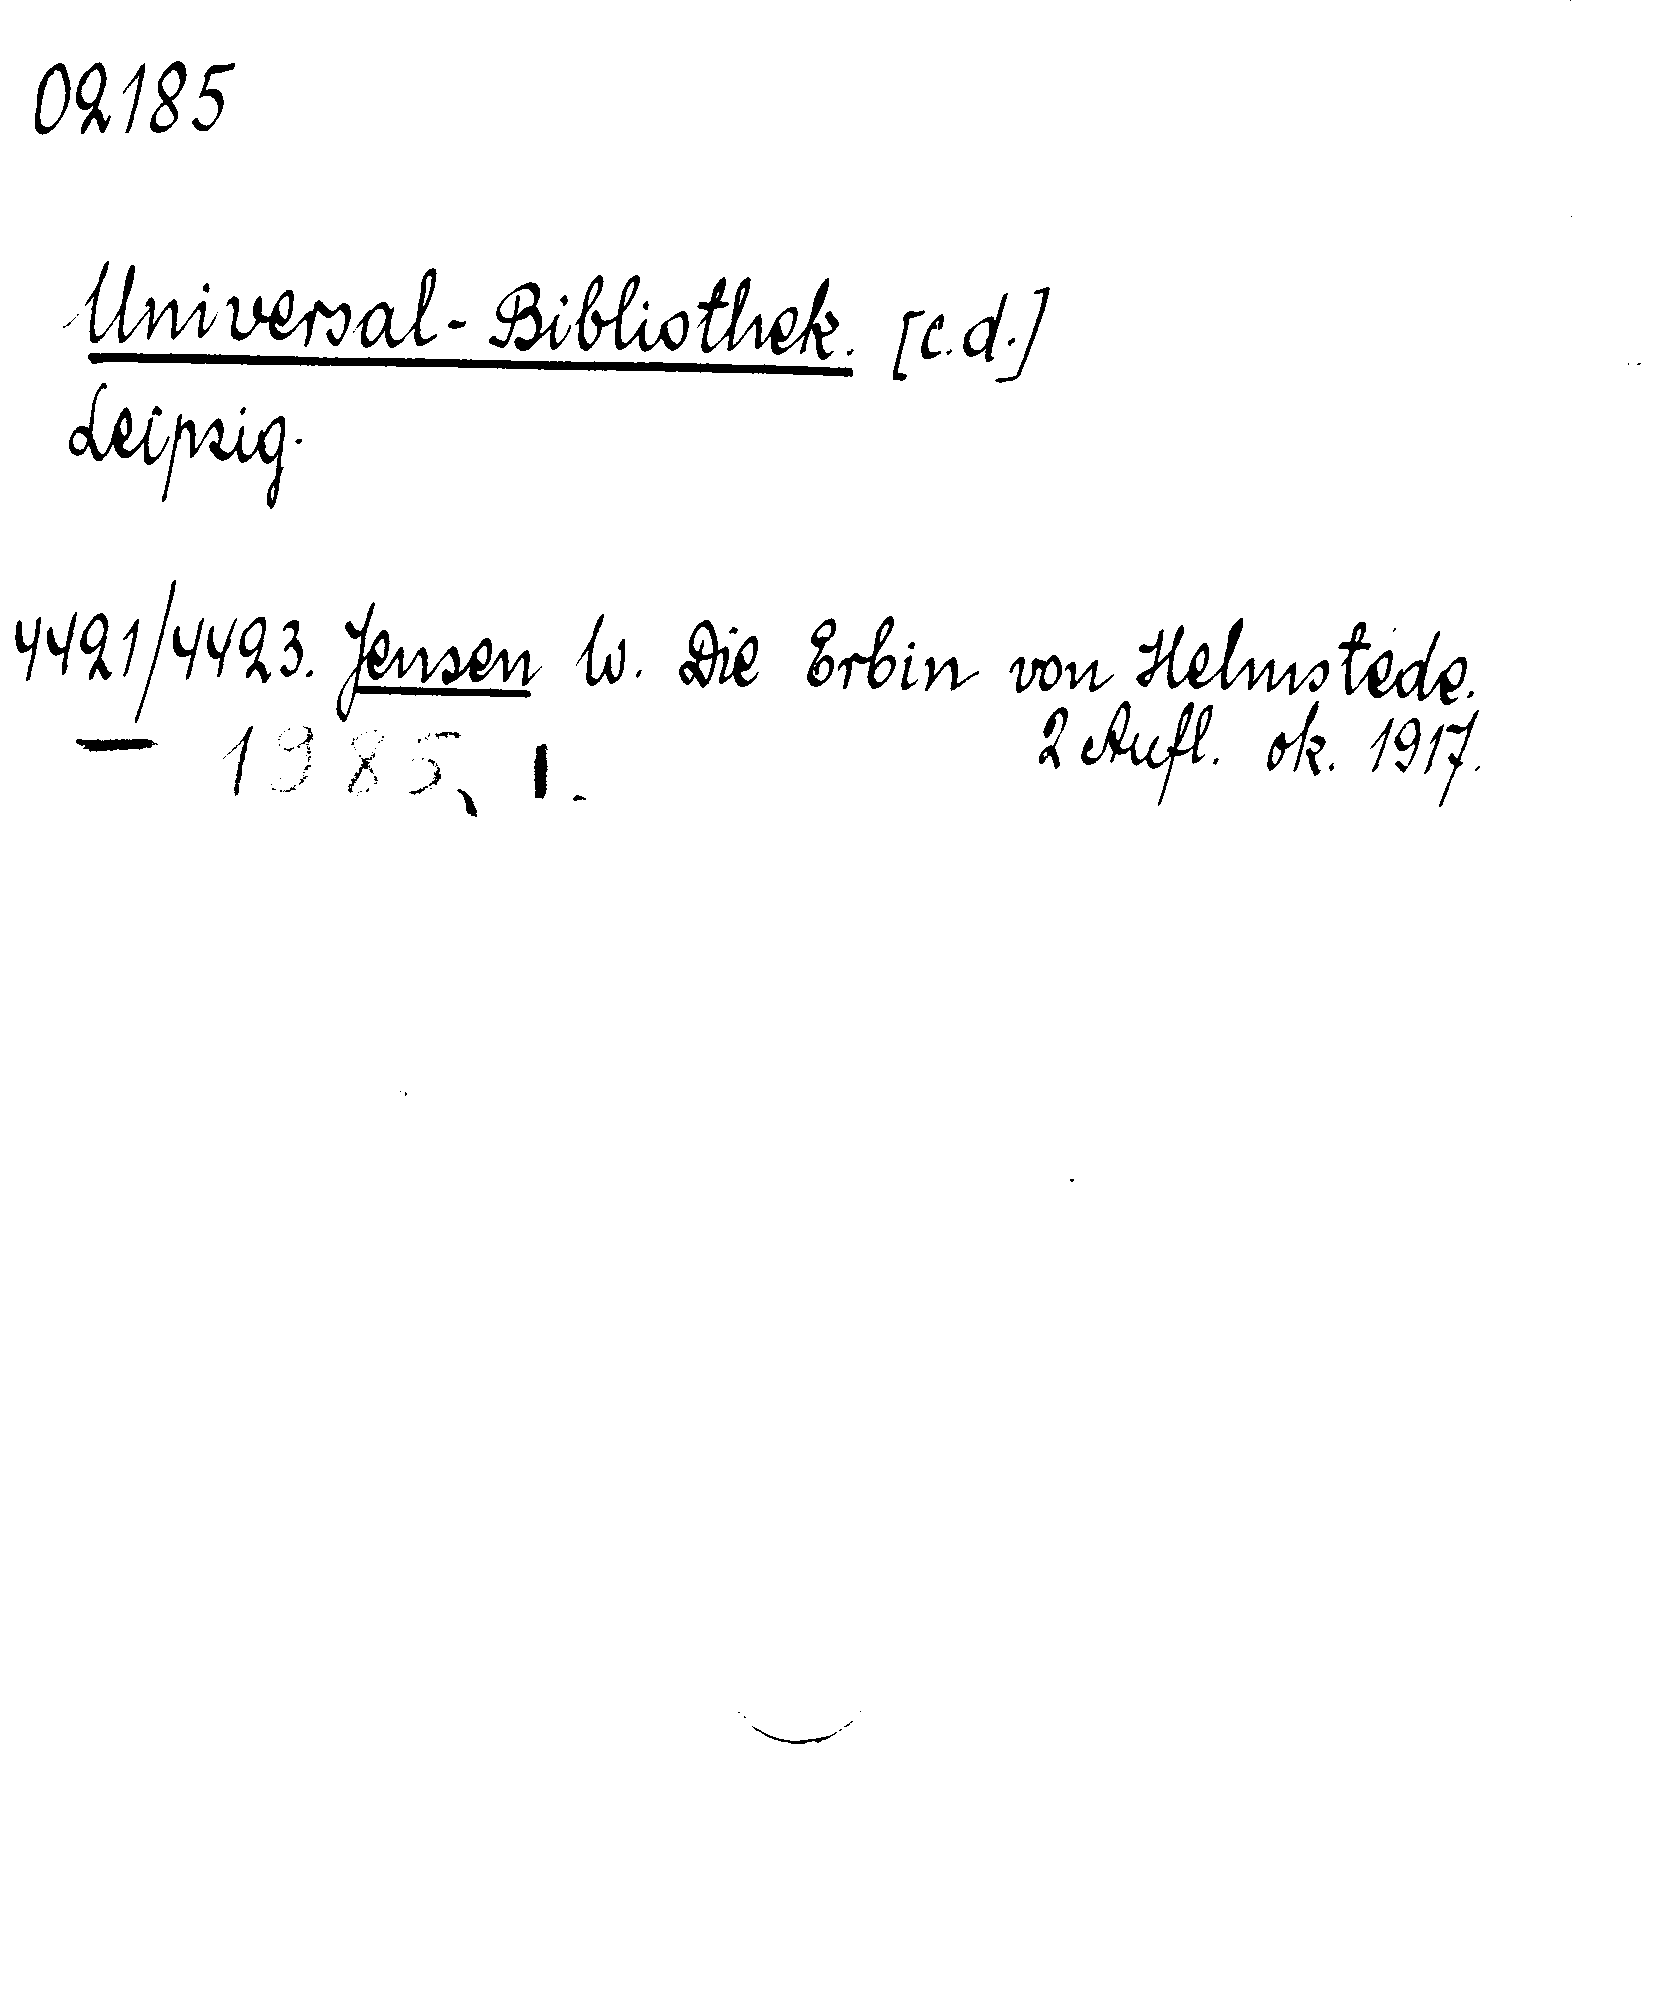 02185
Universal-Bibliothek. [c.d.]
Leipzig.
4421/4423. Jensen W. Die Erbin von Helmstede.
2 Aufl. ok. 1917.
— 1985, 1.